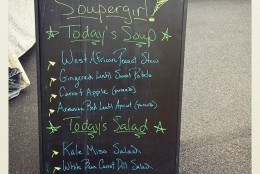 Soupergirl!
Today's Soup
West African Peanut Stew
Gingered Lentil Sweet Potato
Carrot Apple (pureed)
Armenian Red Lentil Apricot (pureed)
Today's Salad
Kale Miso Salad
White Bean Carrot Dill Salad